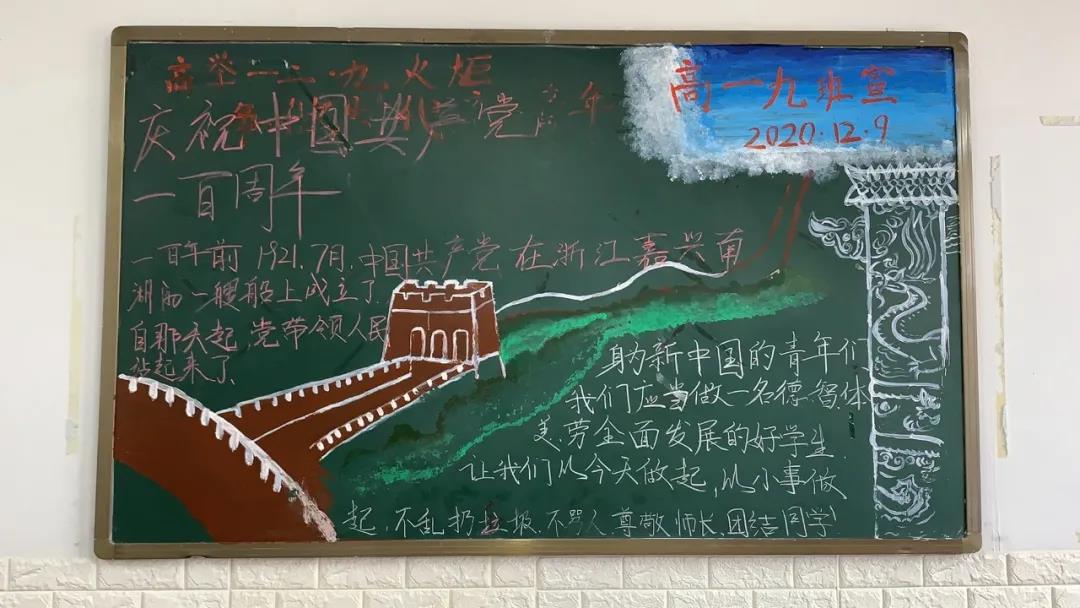 高举一二·九火炬
庆祝中国共产党
一百周年
高一九班宣
2020.12.9
一百年前1921.7月.中国共产党在浙江嘉兴南
湖的一艘船上成立了
自那天起,党带领人民
站起来了
身为新中国的青年们
我们应当做一名德.智.体
美.劳全面发展的好学生.
让我们从今天做起,从小事做
起,不乱扔垃圾.不骂人.尊敬师长.团结同学!